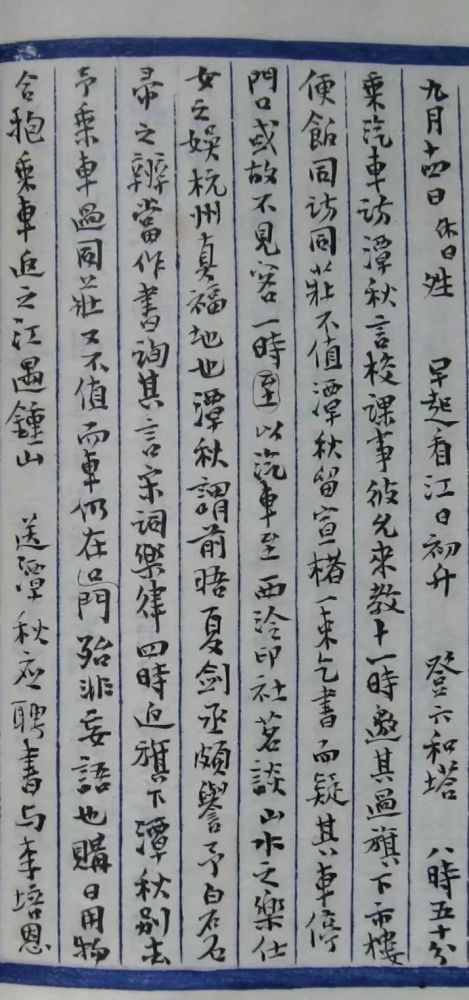 九月十四日 休日 姓 早起看江日初升 登六和塔 八時五十分
乘汽車訪潭秋言校課事彼允來教十一時邀其過旗下市樓
便飯同訪同莊不值潭秋留宣楮一束乞書而疑其車停
門口或故不見客一時至以汽車至西泠印社茗談山水之樂仕
女之娛杭州真福地也潭秋謂前晤夏劍丞頗譽予白石石
帚之辨當作書詢其言宋詞樂律四時返旗下潭秋別去
予乘車過同莊又不值而車仍在門殆非妄語也購日用物
合孢乘車返之江遇鍾山 送潭秋應聘書与李培恩